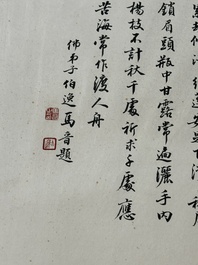 鎖眉頭瓶中甘露常遍灑手內
楊枝不計秋千處祈求千處應
苦海常作渡人舟
佛弟子伯逸馬晉題